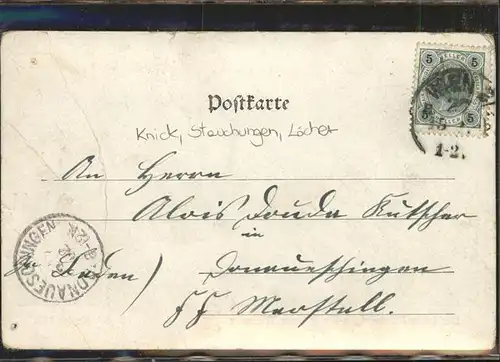 5 5
WIEN
1-2.
Postkarte
Knick, Stauchungen, Löcher
An Herrn
Alois Douda Kutscher
in
(in Baden) Donaueschingen
FF Marstall.
DONAUESCHINGEN